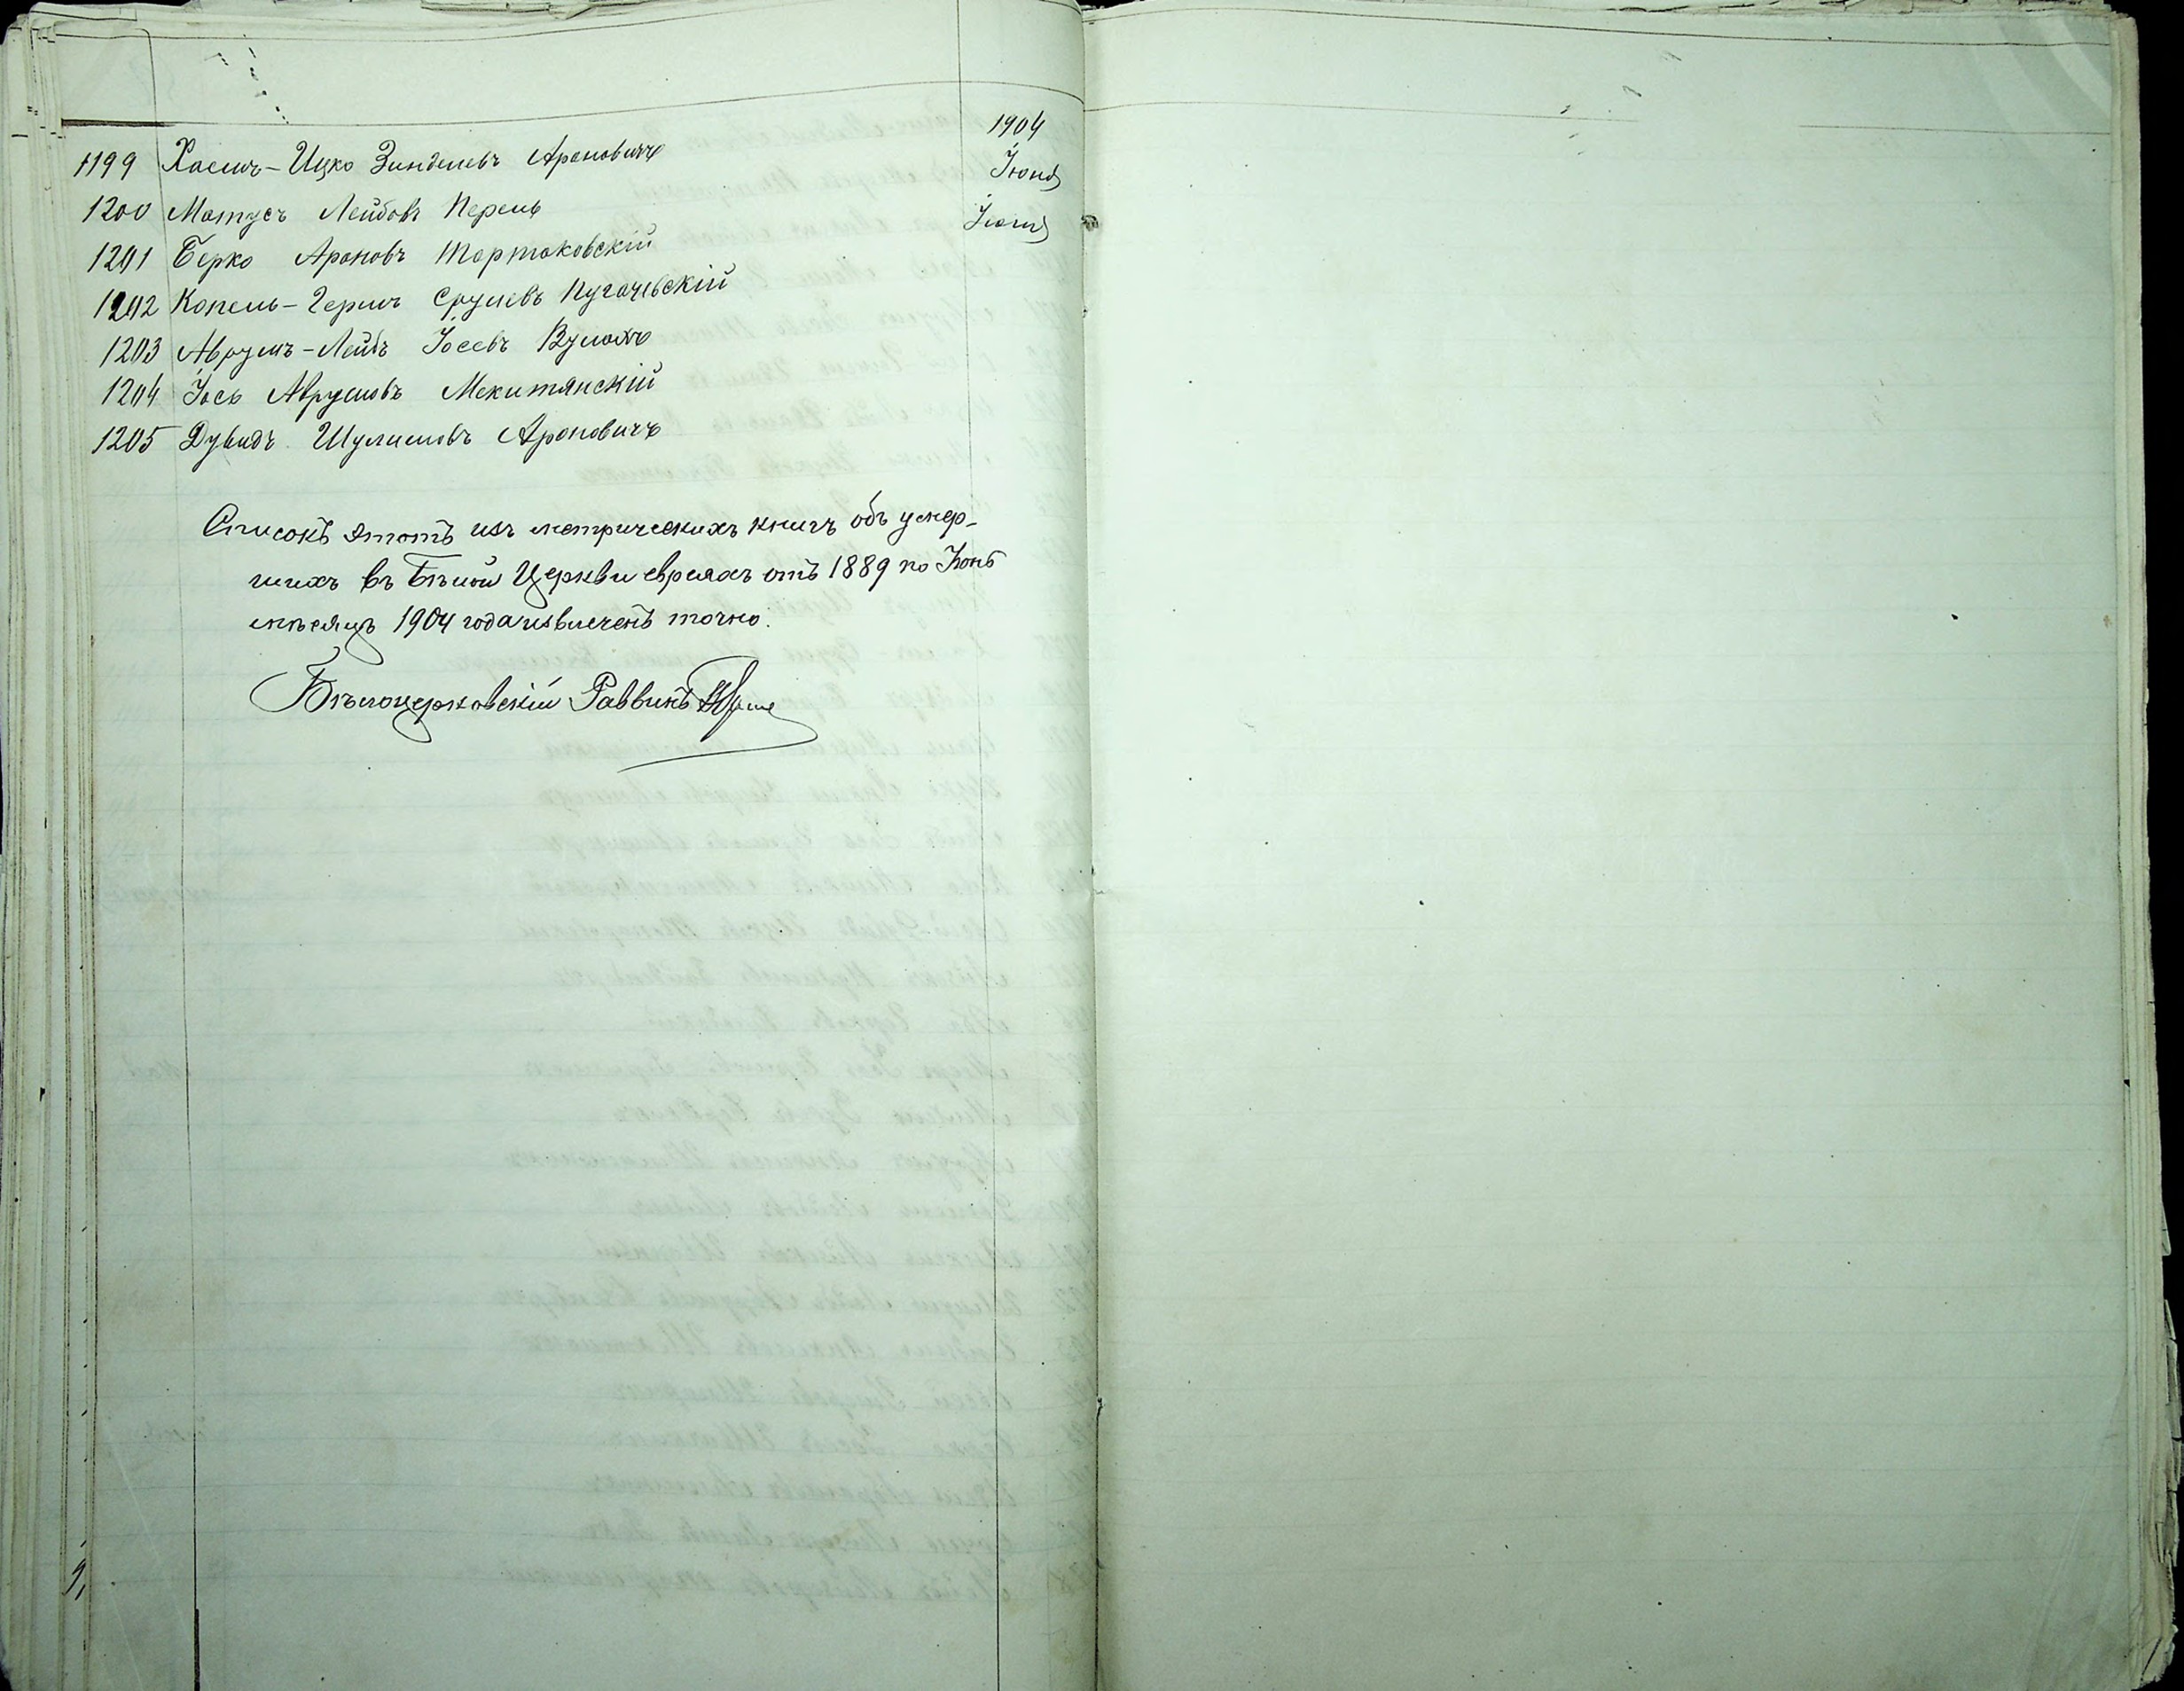 1904
1199 Хаимъ-Ицко Зинделевъ Ароновичъ Іюнь
1200 Матусъ Лейбовъ Перель Іюнь
1201 Берко Ароновъ Тартаковскій
1202 Копель-Гершъ Срулевъ Пугачевскій
1203 Аврумъ-Лейбъ Іосевъ Вулахъ
1204 Іось Аврумовъ Мекитянскій
1205 Дувидъ Шулимовъ Ароновичъ
Списокъ этотъ изъ метрическихъ книгъ объ умер-
шихъ въ Бѣлой Церкви евреяхъ отъ 1889 по Іюнь
мѣсяцъ 1904 года извлеченъ точно.
Бѣлоцерковскій Раввинъ